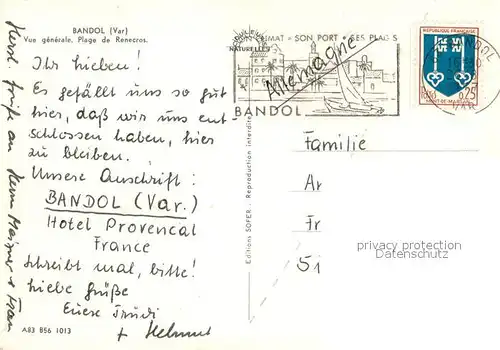 BANDOL (Var)
Vue générale. Plage de Renecros.
Ihr Lieben!
Es gefällt uns so gut
hier, daß wir uns ent-
schlossen haben, hier
zu bleiben.
Unsere Anschrift:
BANDOL (Var.)
Hotel Provencal
France
Schreibt mal, bitte!
Liebe Grüße
Euere Trudi
+ Helmut
Herzl. Grüße an Herrn Meixner + Frau
A83 B56 1013
Editions SOFER - Reproduction interdite
NATURELLES
SON PORT * SES PLAGES
BANDOL
Allemagne
REPUBLIQUE FRANÇAISE
0,25
MONT-DE-MARSAN
BANDOL
VAR
Familie
Ar
Fr
Si
privacy protection
Datenschutz